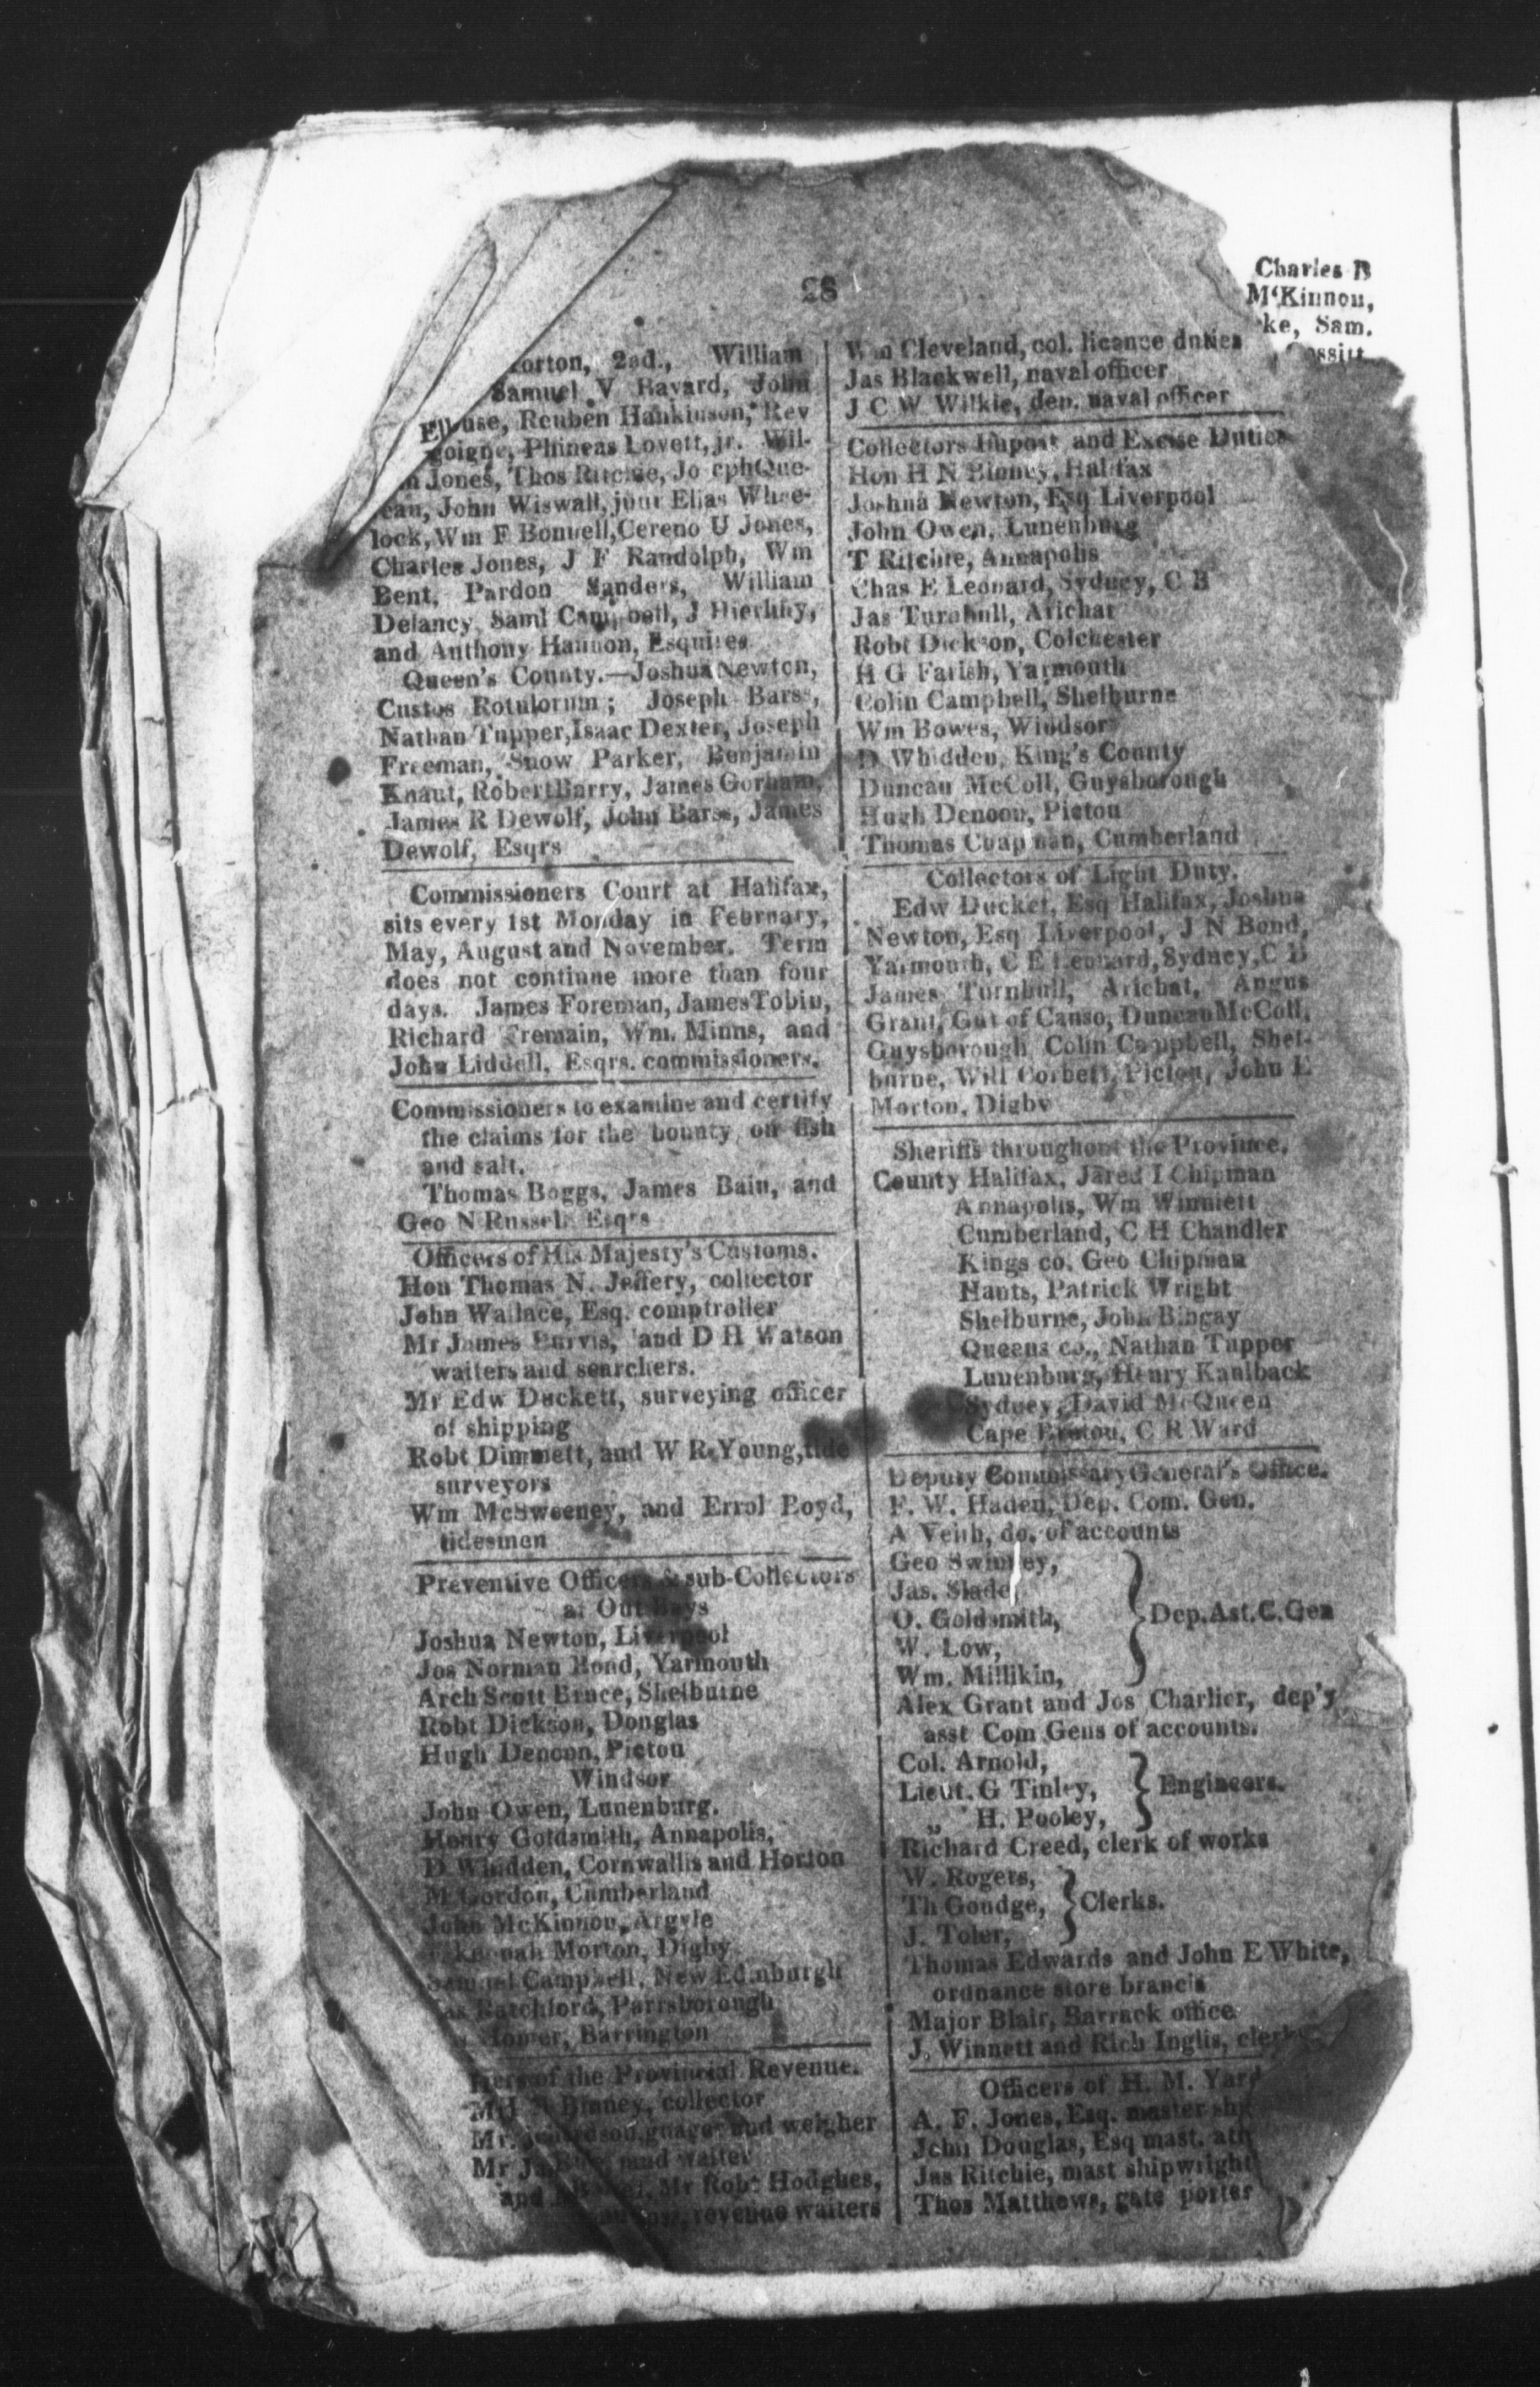 28
orton, 2ad., William
Samuel V Bayard, John
use, Reuben Hankinson, Rev
goigne, Phineas Lovett, jr. Wil-
Jones, Thos Ritchie, Jo ephQue-
eau, John Wiswall, junr Elias Whee-
lock, Wm F Bonnell, Cereno U Jones,
Charles Jones, J F Randolph, Wm
Bent, Pardon Sanders, William
Delancy Saml Campbell, J
and Anthony Hannon, Esquires
Queen's County.—Joshua Newton,
Custos Rotulorum; Joseph Barss,
Nathan Tupper, Isaac Dexter, Joseph
Freeman, Snow Parker, Benjamin
Knaut, Robert Barry, James Gorham,
James R Dewolf, John Barss, James
Dewolf, Esqrs
Commissioners Court at Halifax,
sits every 1st Monday in February,
May, August and November. Term
does not continue more than four
days. James Foreman, James Tobin,
Richard Tremain, Wm. Minns, and
John Liddell, Esqrs. commissioners.
Commissioners to examine and certify
the claims for the bounty on fish
and salt.
Thomas Boggs, James Bain, and
Geo N Russell Esqrs
Officers of His Majesty's Customs.
Hon Thomas N. Jeffery, collector
John Wallace, Esq. comptroller
Mr James Purvis, and D H Watson
waiters and searchers.
Mr Edw Duckett, surveying officer
of shipping
Robt Dimmett, and W R Young, tide
surveyors
Wm McSweeney, and Errol Boyd,
tidesmen
Preventive Officers & sub-Collectors
at Out Bays
Joshua Newton, Liverpool
Jos Norman Bond, Yarmouth
Arch Scott Bruce, Shelburne
Robt Dickson, Douglas
Hugh Denoon, Pictou
Windsor
John Owen, Lunenburg.
Henry Goldsmith, Annapolis,
D Whidden, Cornwallis and Horton
M Gordon, Cumberland
John McKinnon, Argyle
Morton, Digby
Samuel Campbell, New Edinburgh
Ratchford, Parrsborough
Homer, Barrington
of the Provincial Revenue.
Binney, collector
Mr. guager and weigher
Mr and waiter
and Mr Robt Hodghes,
revenue waiters
Wm Cleveland, col. licance duties
Jas Blackwell, naval officer
J C W Wilkie, dep. naval officer
Collectors Impost and Excise Duties
Hon H N Binney, Halifax
Joshua Newton, Esq Liverpool
John Owen, Lunenburg
T Ritchie, Annapolis
Chas E Leonard, Sydney, C B
Jas Turnbull, Arichat
Robt Dickson, Colchester
H G Farish, Yarmouth
Colin Campbell, Shelburne
Wm Bowes, Windsor
D Whidden, King's County
Duncan McColl, Guysborough
Hugh Denoon, Pictou
Thomas Chapman, Cumberland
Collectors of Light Duty.
Edw Ducket, Esq Halifax, Joshua
Newton, Esq Liverpool, J N Bond,
Yarmouth, C E Leonard, Sydney, C B
James Turnbull, Arichat, Angus
Grant, Gut of Canso, Duncan McColl,
Guysborough Colin Campbell, Shel-
burne, Will Corbett, Pictou, John E
Morton, Digby
Sheriffs throughout the Province.
County Halifax, Jared I Chipman
Annapolis, Wm Winniett
Cumberland, C H Chandler
Kings co. Geo Chipman
Hants, Patrick Wright
Shelburne, John Bingay
Queens co., Nathan Tupper
Lunenburg, Henry Kaulback
Sydney, David McQueen
Cape Breton, C R Ward
Deputy Commissary General's Office.
F. W. Haden, Dep. Com. Gen.
A Veith, do. of accounts
Geo Swinney,
Jas. Slade
O. Goldsmith,
W. Low,
Wm. Millikin,
Dep. Ast. C. Gen
Alex Grant and Jos Charlier, dep'y
asst Com Gens of accounts.
Col. Arnold,
Lieut. G Tinley,
„ H. Pooley,
Engineers.
Richard Creed, clerk of works
W. Rogers,
Th Goudge,
J. Toler,
Clerks.
Thomas Edwards and John E White,
ordnance store branch
Major Blair, Barrack office
J. Winnett and Rich Inglis, clerks
Officers of H. M. Yard
A. F. Jones, Esq. master
John Douglas, Esq mast.
Jas Ritchie, mast shipwright
Thos Matthews, gate porter
Charles B
M'Kinnon,
ke, Sam.
ossitt